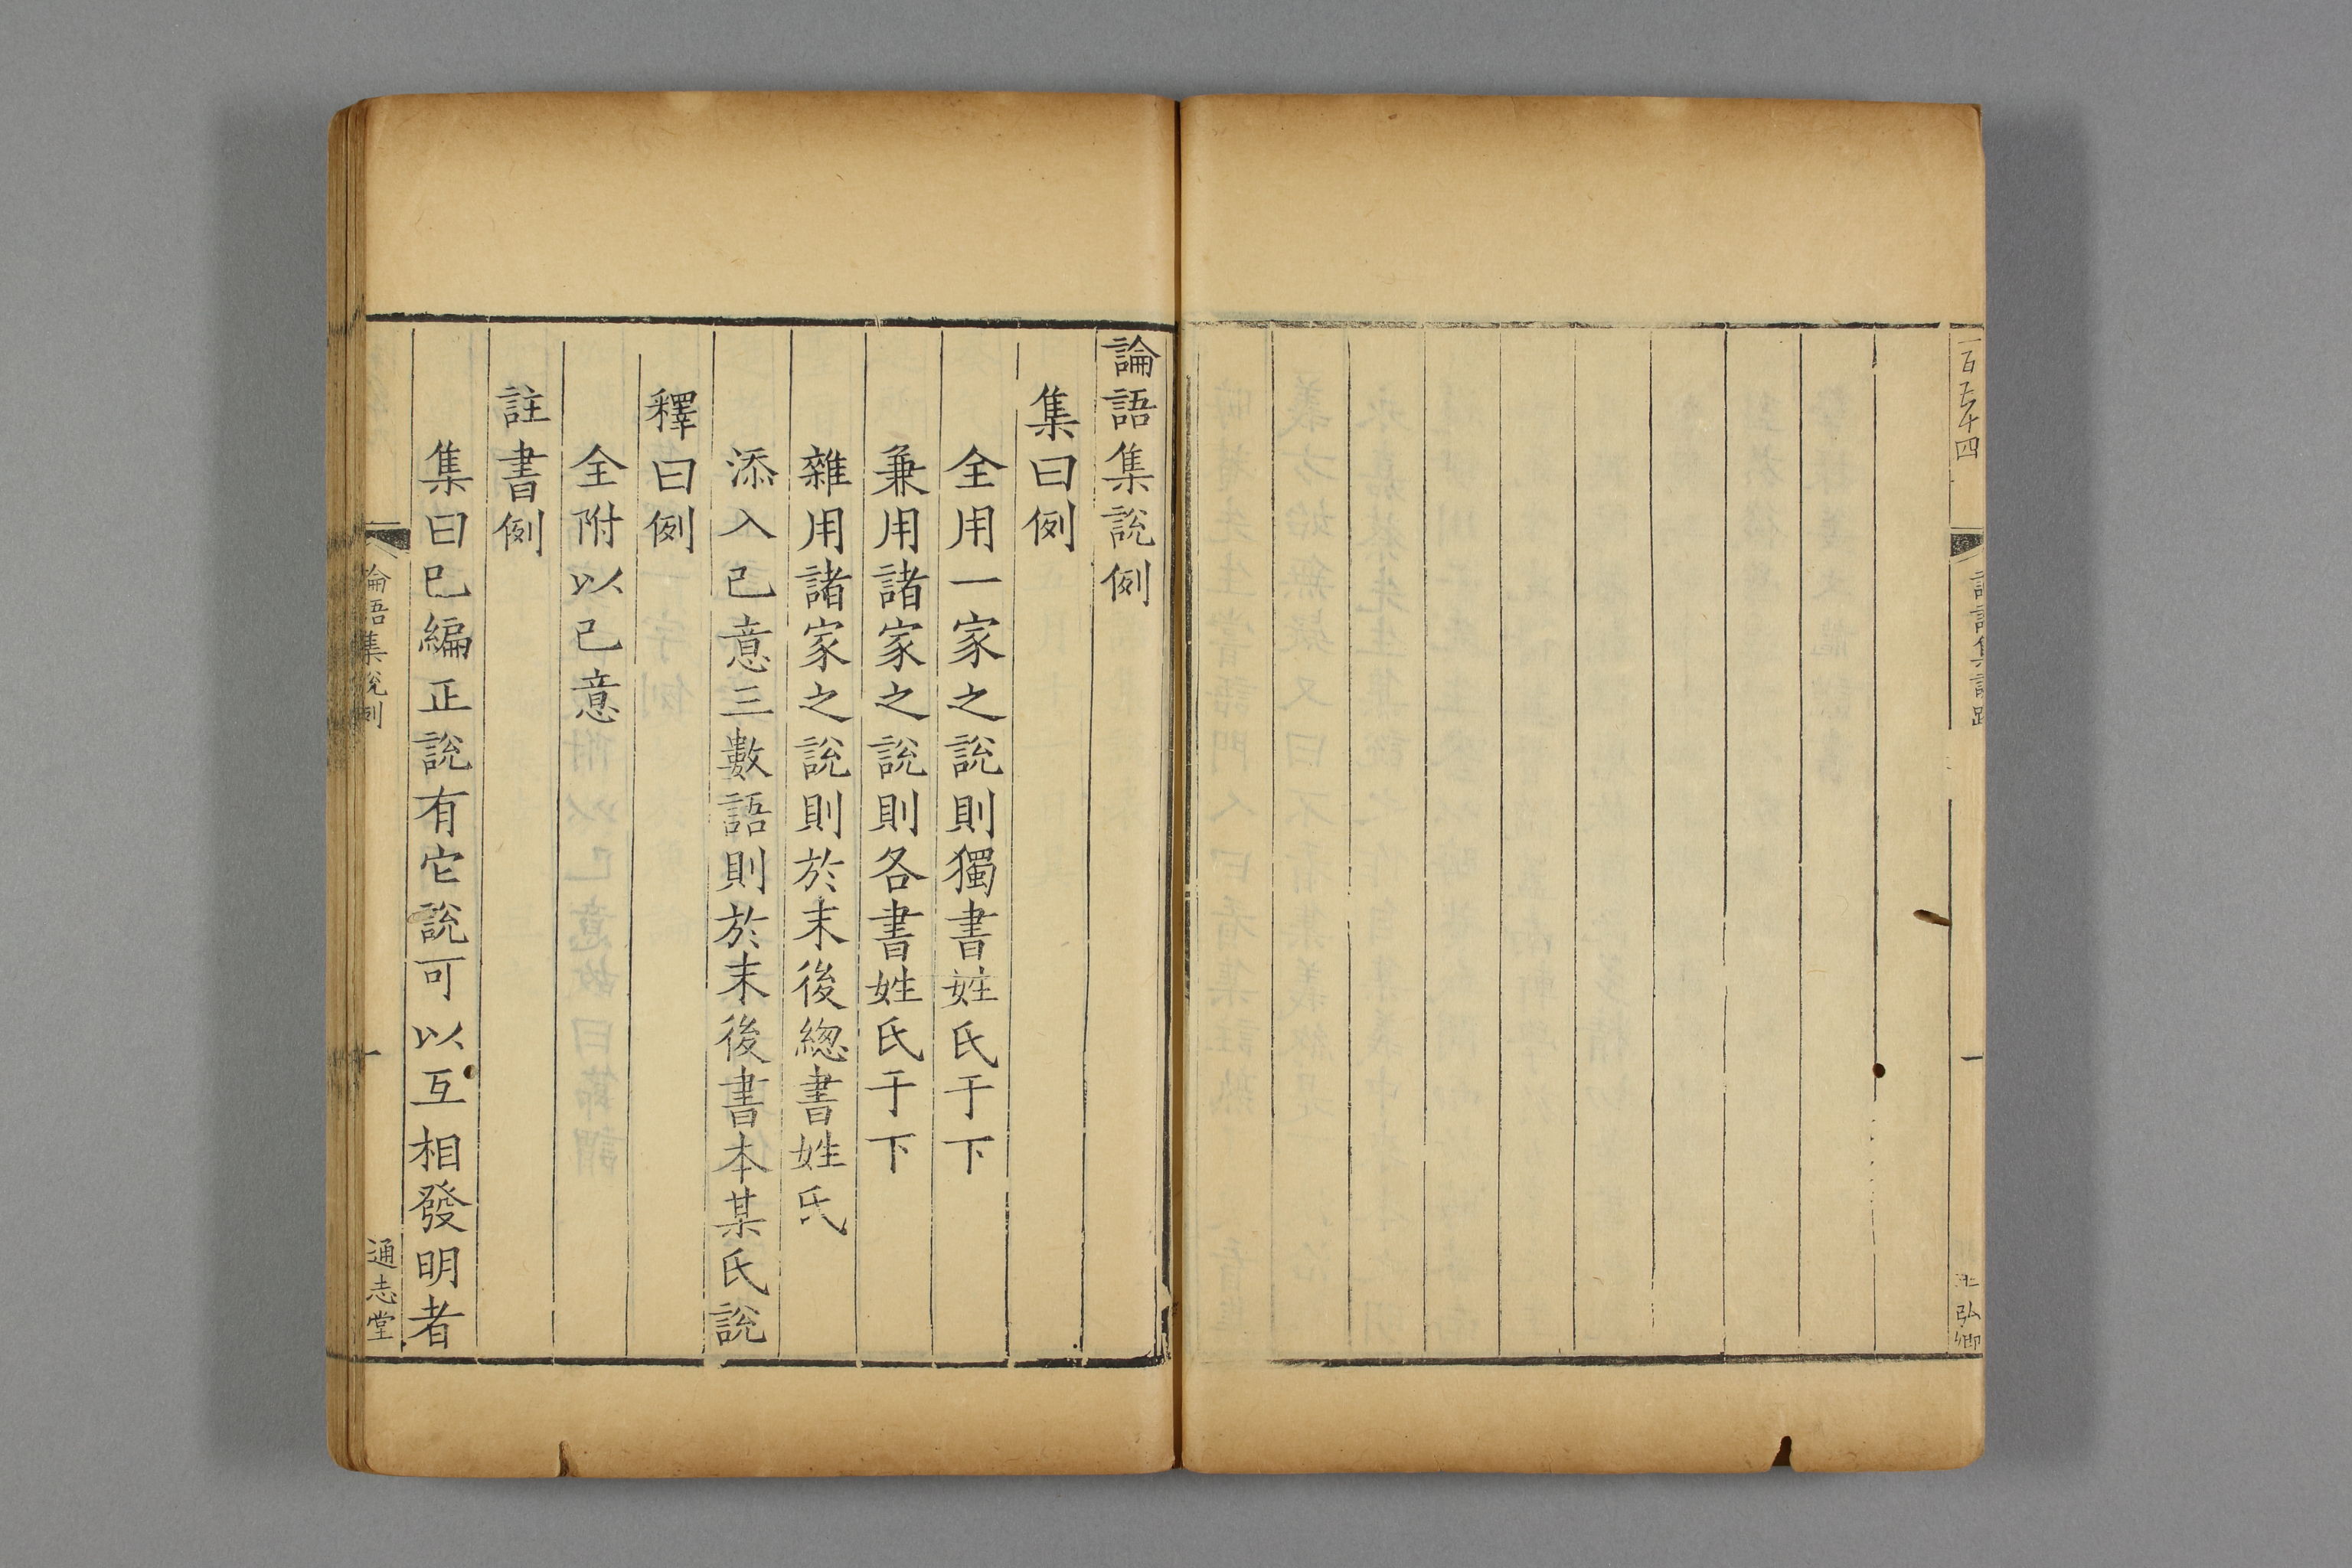 一百五十四
弘卿
論語集說例
集曰例
全用一家之說則獨書姓氏于下
兼用諸家之說則各書姓氏于下
雜用諸家之說則於末後緫書姓氏
添入己意三數語則於末後書本某氏說
釋曰例
全附以己意
註書例
集曰已編正說有它說可以互相發明者
論語集說例
一
通志堂